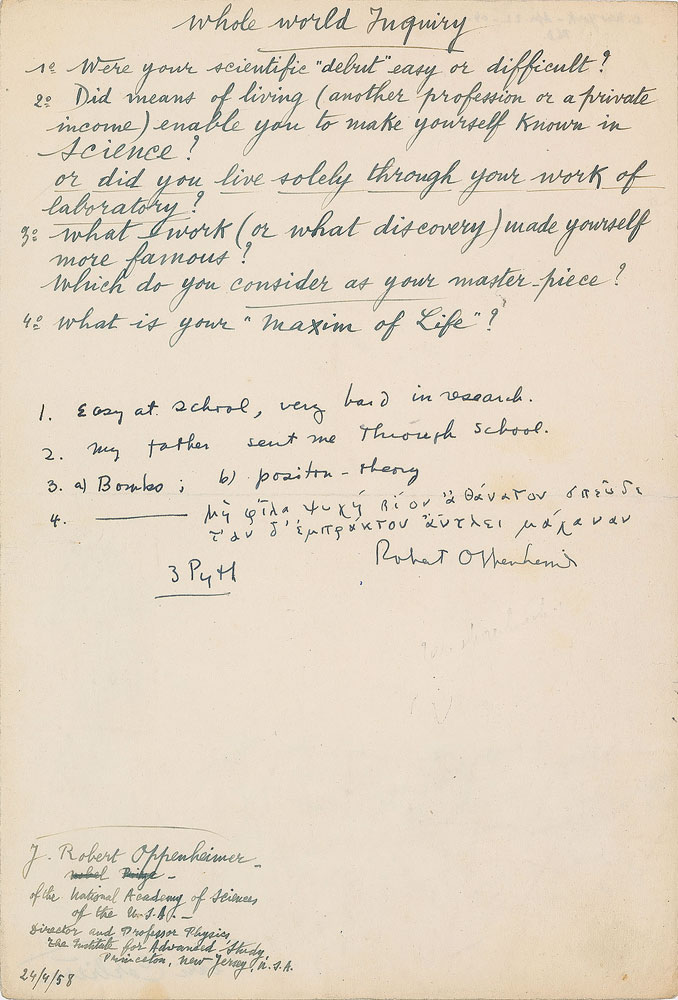 whole world Inquiry
1º Were your scientific "debut" easy or difficult?
2º Did means of living (another profession or a private
income) enable you to make yourself known in
science?
or did you live solely through your work of
laboratory?
3º what work (or what discovery) made yourself
more famous?
Which do you consider as your master-piece?
4º what is your "Maxim of Life"?
1. Easy at school, very hard in research.
2. my father sent me through school.
3. a) Bombs; b) positron-theory
4. — μὴ φίλα ψυχή βίον ἀθάνατον σπεῦδε
τὰν δ' ἔμπρακτον ἄντλει μάχαναν
3 Pyth
Robert Oppenheimer
J. Robert Oppenheimer -
nobel Prize -
of the National Academy of Sciences
of the U.S.A. -
Director and Professor Physics
The Institute for Advanced Study
Princeton, New Jersey, U.S.A.
24/4/58